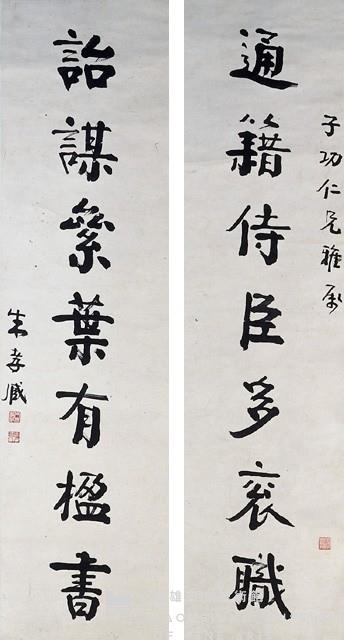 子功仁兄雅屬
通籍侍臣多袞職
詒謀絫葉有楹書
朱孝臧